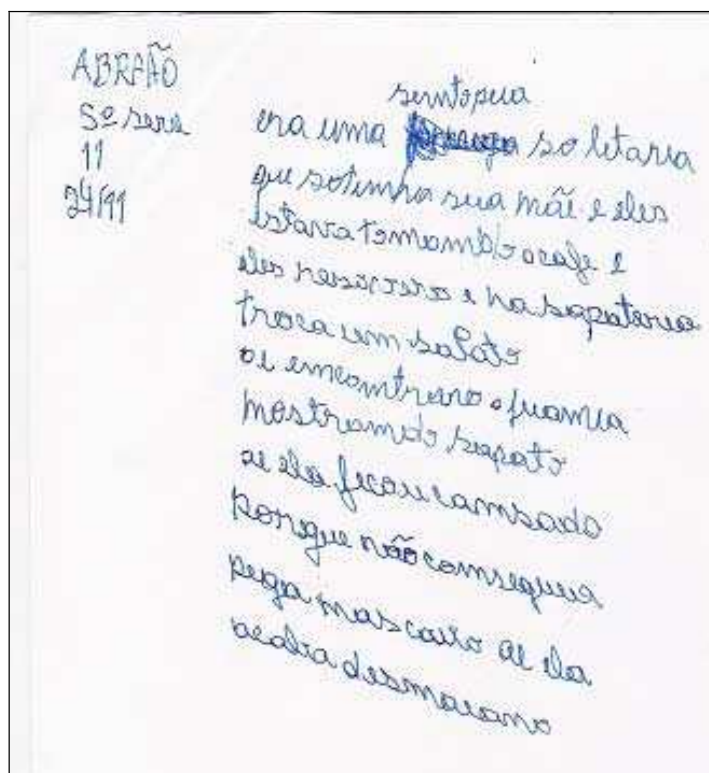 ABRAÃO
5º serie
11
24/11
sentopeia
era uma so litaria
que sotinha sua mãi e eles
estava tomamdo o cafe e
eles e na sapateria
troca um sapato
ai emcomtraro o
mostramdo sapato
ai ele ficou camsado
porque não comseguiu
pega mas ai ela
acaba desmaiano